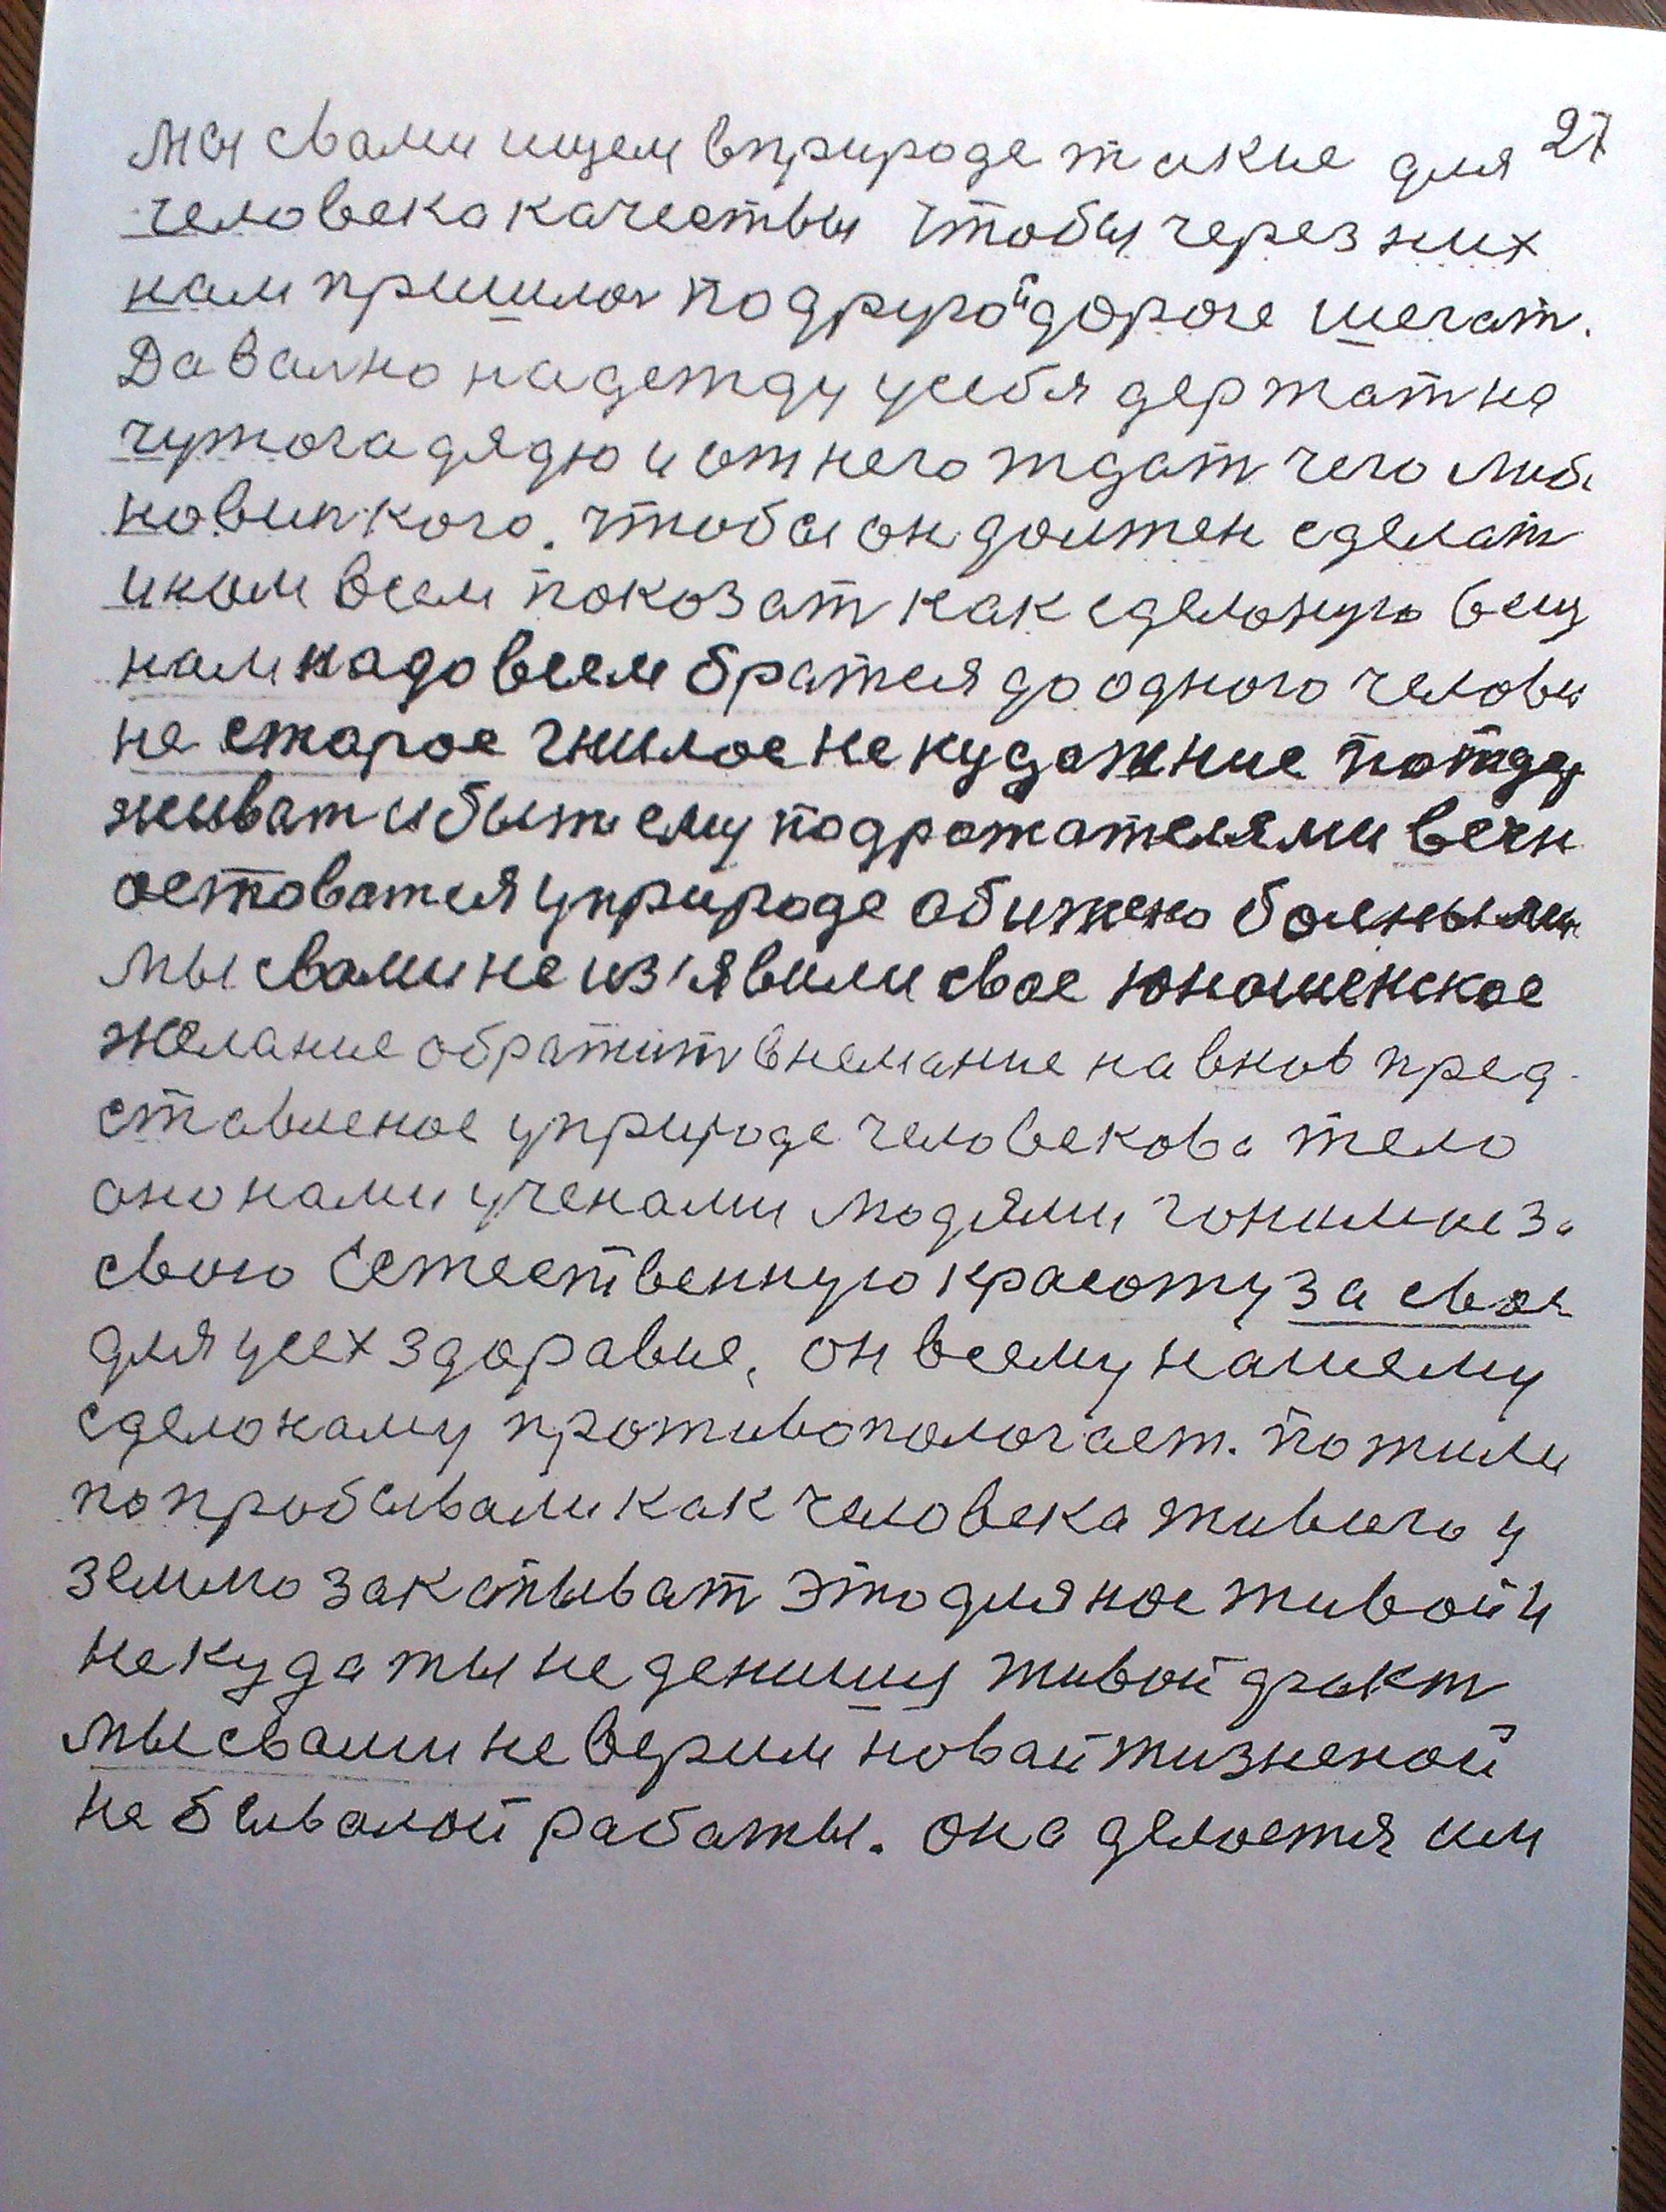 Мы свами ищем вприроде такие для 27
человека качествы чтобы через них
нам пришлос подругойдороге шегат.
Да вално надежду усебя держат на
чужога дядю и отнего ждат чего либ
новинкого. чтобы он должен сделат
инам всем показат как сделоную вещ
нам надо всем братся до одного челове
не старое гнилое не кудажние поддер
живат и быт ему подражателями вечн
оставатся у природе обижено болными
мы свами не из'явили свое юношенское
желание обратит внемание на вновь пред-
ставленое у природе человекова тело
оно нами учеными людями гонимое за
свою Естественную красоту за свое
для усех здоравие, он всему нашему
сделоному противопологает. пожили
попробывали как человека живого у
землю закапыват это для нас живой и
не куда ты не денишц живой факт
мы свами не верим новай жизненой
не бывалой работы. она делается им